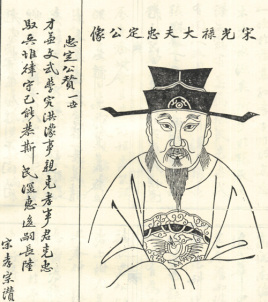 宋光祿大夫忠定公像
忠定公贊一首
才兼文武學究洪濛事親克孝事君克忠
取兵惟律守己能恭斯民渥惠遠嗣長隆
宋孝宗讚